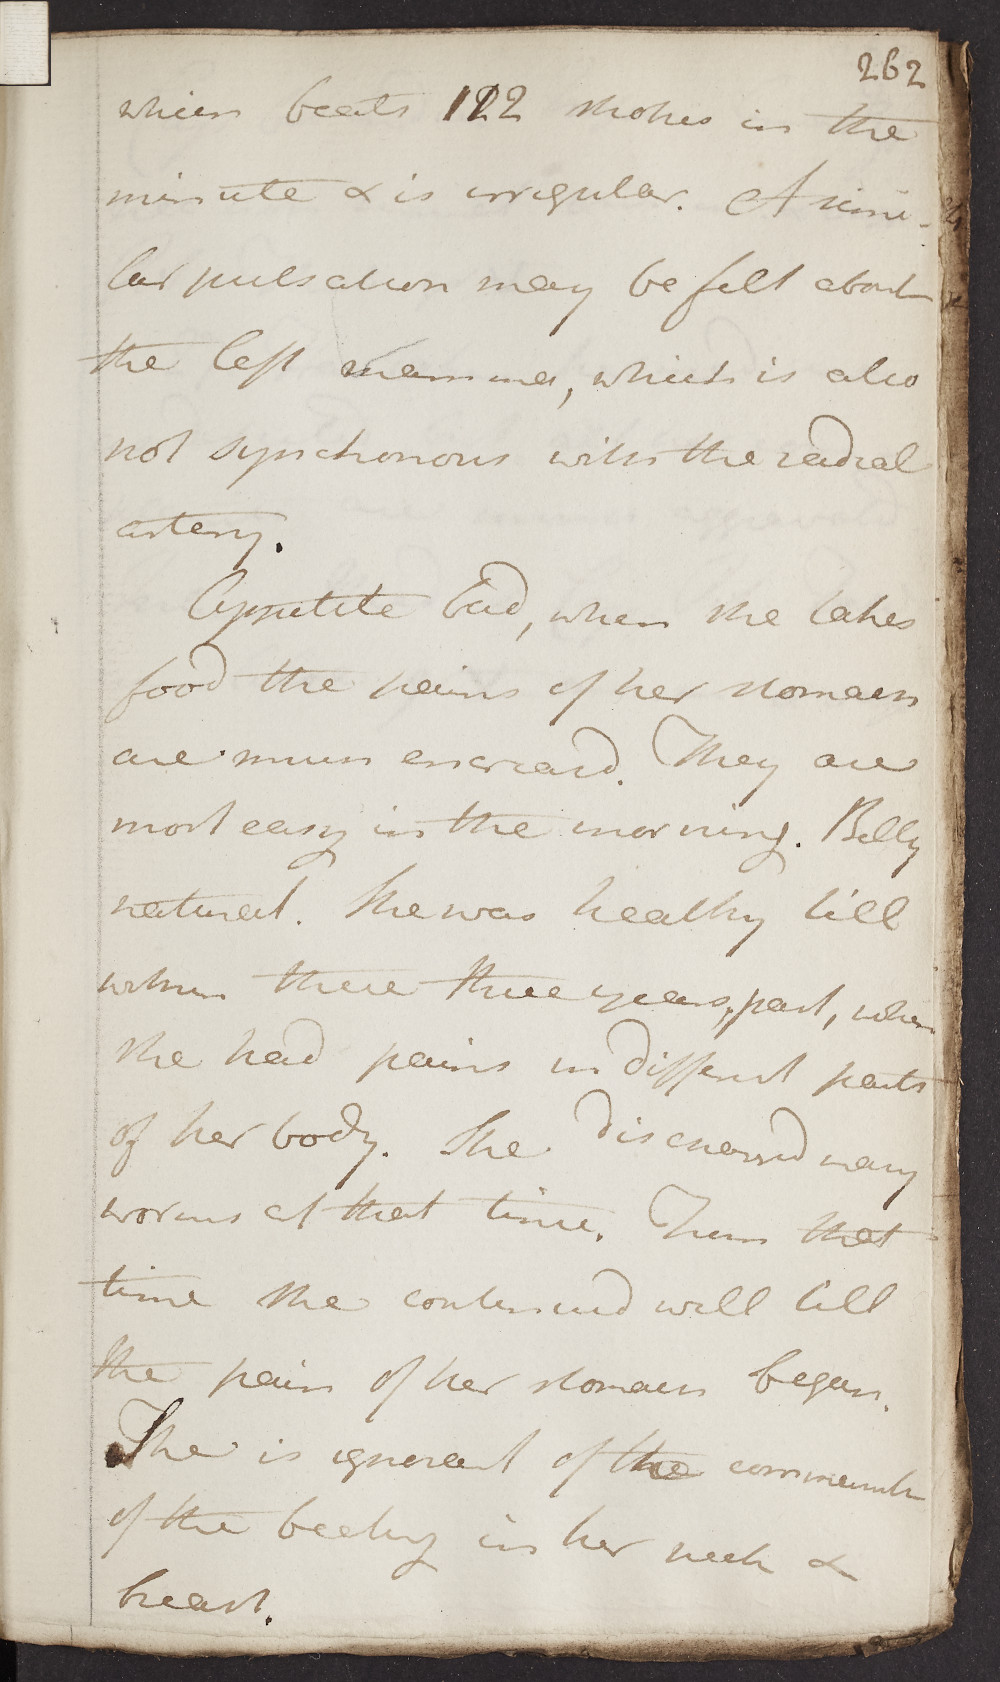 262
which beats 122 strokes in the
minute & is irregular. A simi-
lar pulsation may be felt about
the left mamma, which is also
not synchonous with the radial
artery.
Appetite bad, when she takes
food the pains of her stomach
are much encreasd. They are
most easy in the morning. Belly
natural. She was healthy till
within these three years, past, when
she had pains in different parts
of her body. She discharrd many
worms at that time. From that
time she continued well till
the pain of her stomach began.
She is ignorant of the commencmt
of the beating in her neck &
breast.